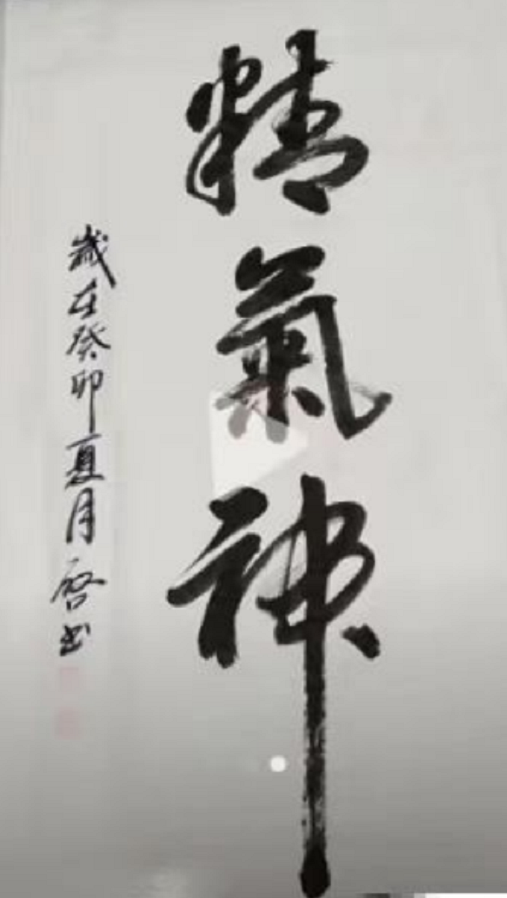 精氣神
歲在癸卯夏月啓书